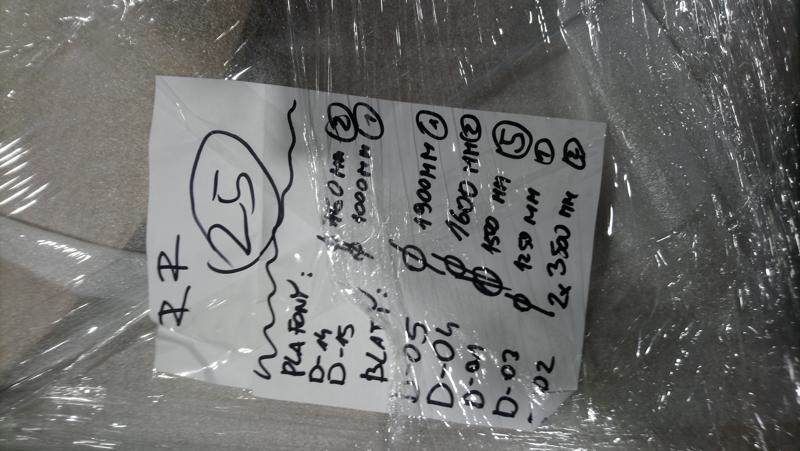 RR 25
PLAFONY:
D-14 ⌀ 1160 MM ②
D-15 ⌀ 1000 MM ①
BLATY:
D-05 ⌀ 1900 MM ①
D-04 ⌀ 1600 MM ②
D-01 ⌀ 1500 MM ⑤
D-03 ⌀ 1250 MM ①
-02 2x 3500 MM